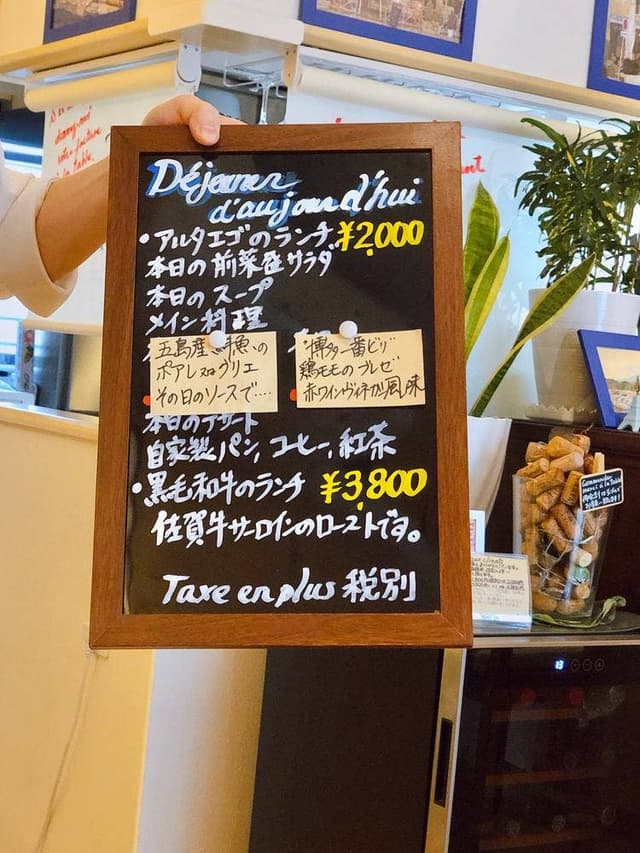 Déjeuner
d'aujourd'hui
・アルタエゴのランチ ¥2,000
本日の前菜産サラダ
本日のスープ
メイン料理
五島産 の
ポアレ又はグリエ
その日のソースで‥‥
博多一番ビリ
鶏モモのブレゼ
赤ワインヴィネガー風味
本日のデザート
自家製パン,コーヒー,紅茶
・黒毛和牛のランチ ¥3,800
佐賀牛サーロインのローストです。
Taxe en plus 税別